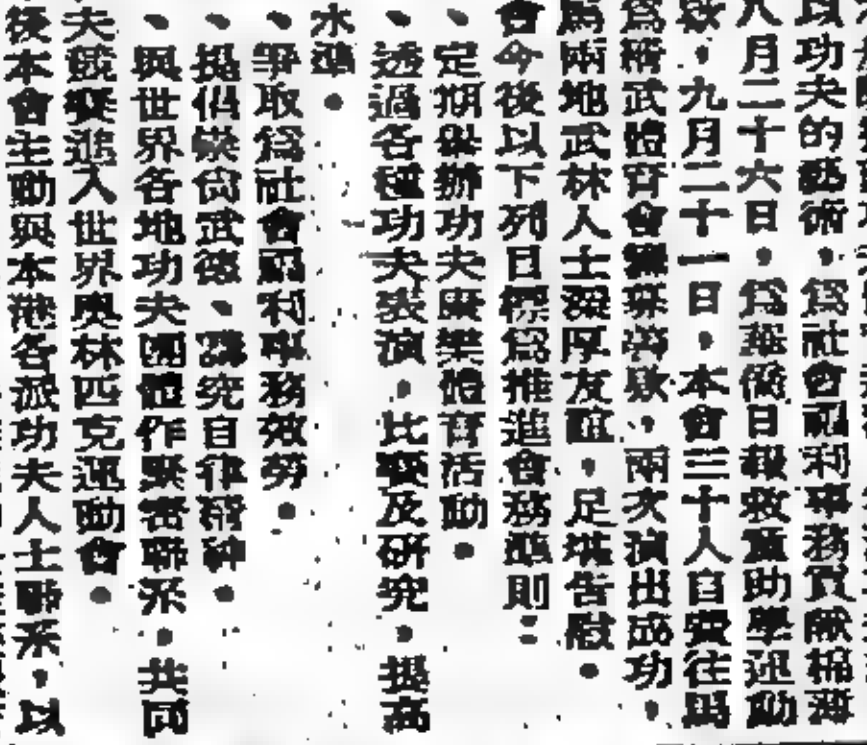 以功夫的藝術，為社會福利事務貢獻棉薄
八月二十六日，為華僑日報救童助學運動
，九月二十一日，本會三十人自費往
精武體育會籌募，兩次演出成功，
為兩地武林人士深厚友誼，足堪告慰。
會今後以下列目標為推進會務準則：
、定期舉辦功夫康樂體育活動。
、透過各種功夫表演，比賽及研究，提高
水準。
、爭取為社會福利事務效勞。
、提倡崇尚武德、講究自律精神。
、與世界各地功夫團體作緊密聯系，共同
夫競賽進入世界奧林匹克運動會。
後本會主動與本港各派功夫人士聯系，以